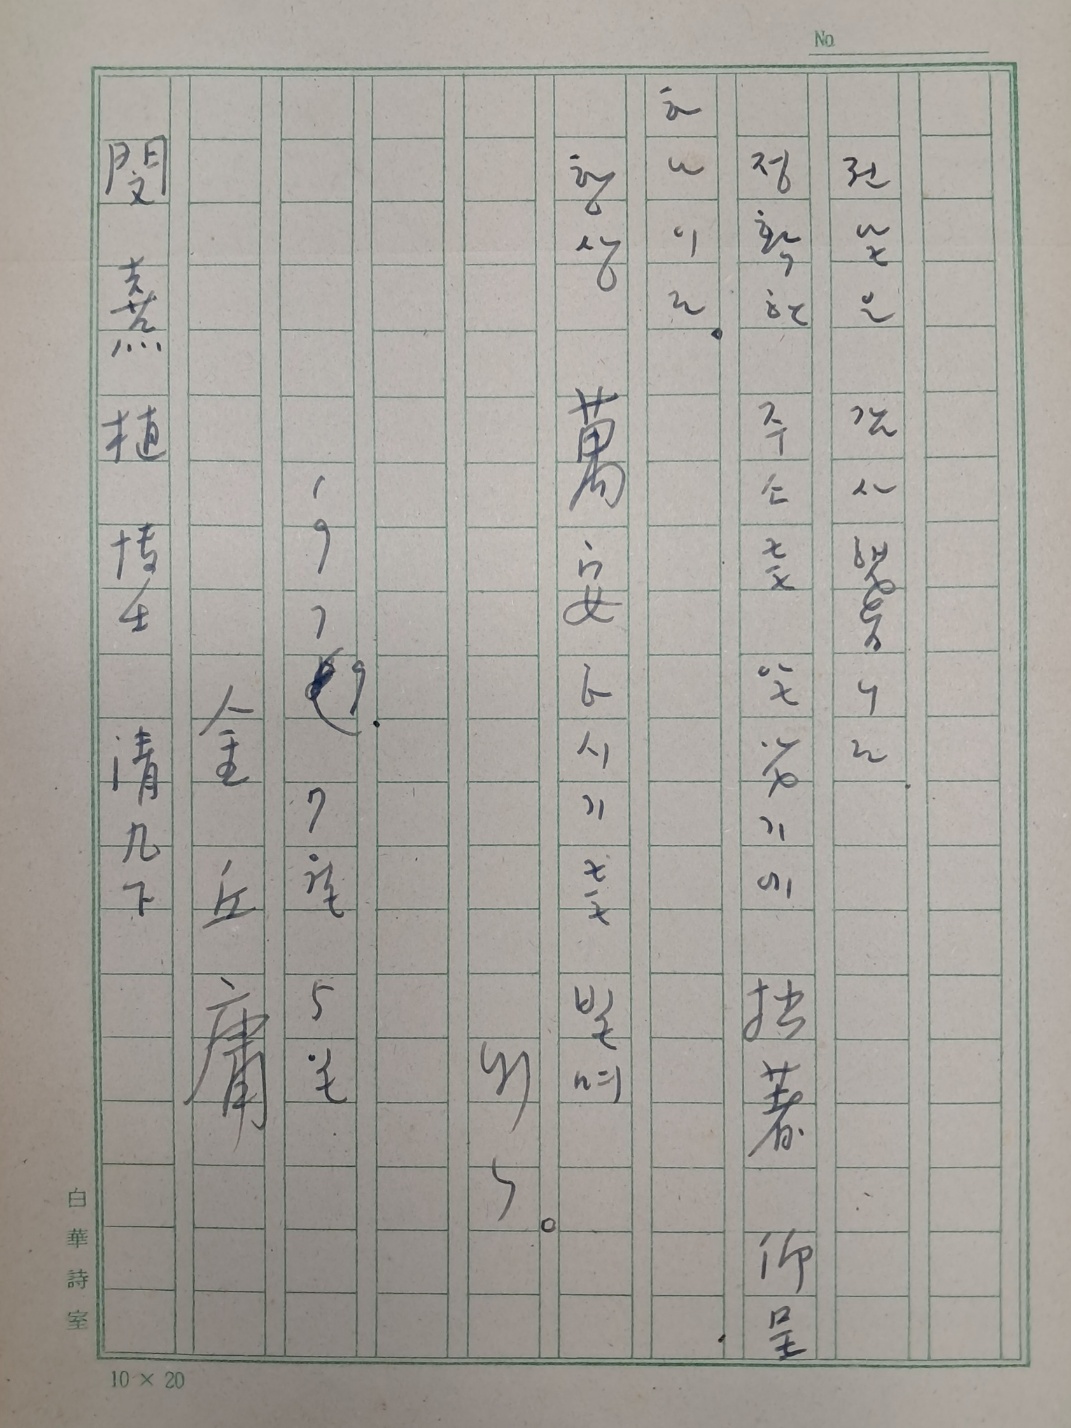 No.
전날은 감사했읍니다
정확한 주소를 알았기에 拙著 仰呈
하나이다.
항상 萬安하시기를 빌며
1979. 7월 5일
金丘庸
閔熹植 博士 清几下
白華詩室
10 × 20